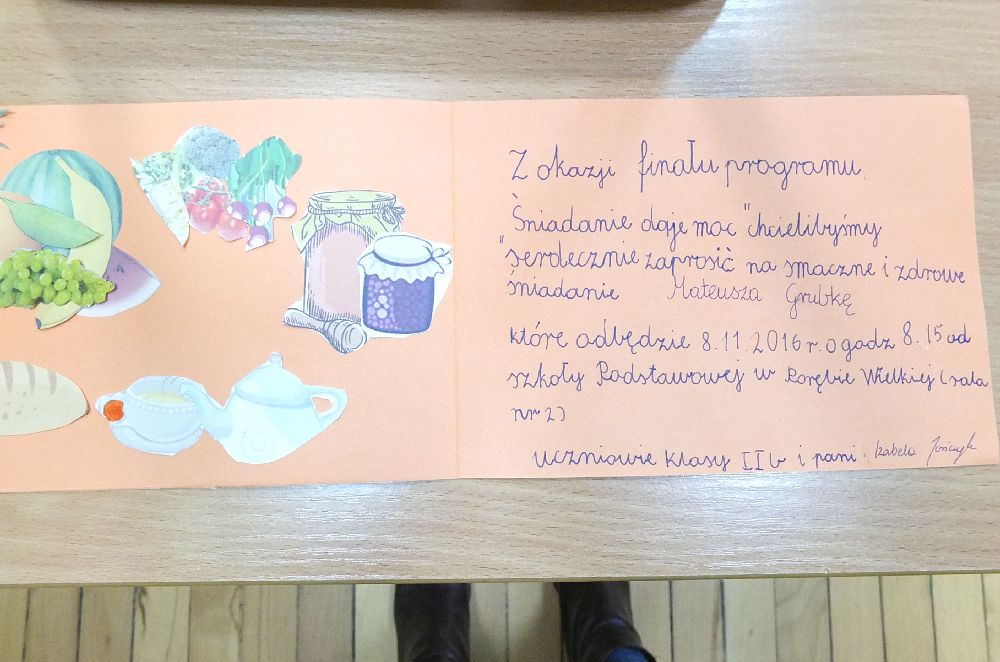 Z okazji finału programu
Śniadanie daje moc" chcielibyśmy
"serdecznie zaprosić na smaczne i zdrowe
śniadanie Mateusza Grubkę
które odbędzie 8.11.2016 r. o godz 8.15 od
szkoły Podstawowej w Porębie Wielkiej (sala
nr 2)
Uczniowie klasy II b i pani. Izabela